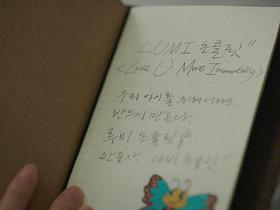 <LUMI 초콜릿"
<Love U More Immortally>
우리 아이를 위해서라도,
반드시 만든다.
루미 초콜릿
만들자.